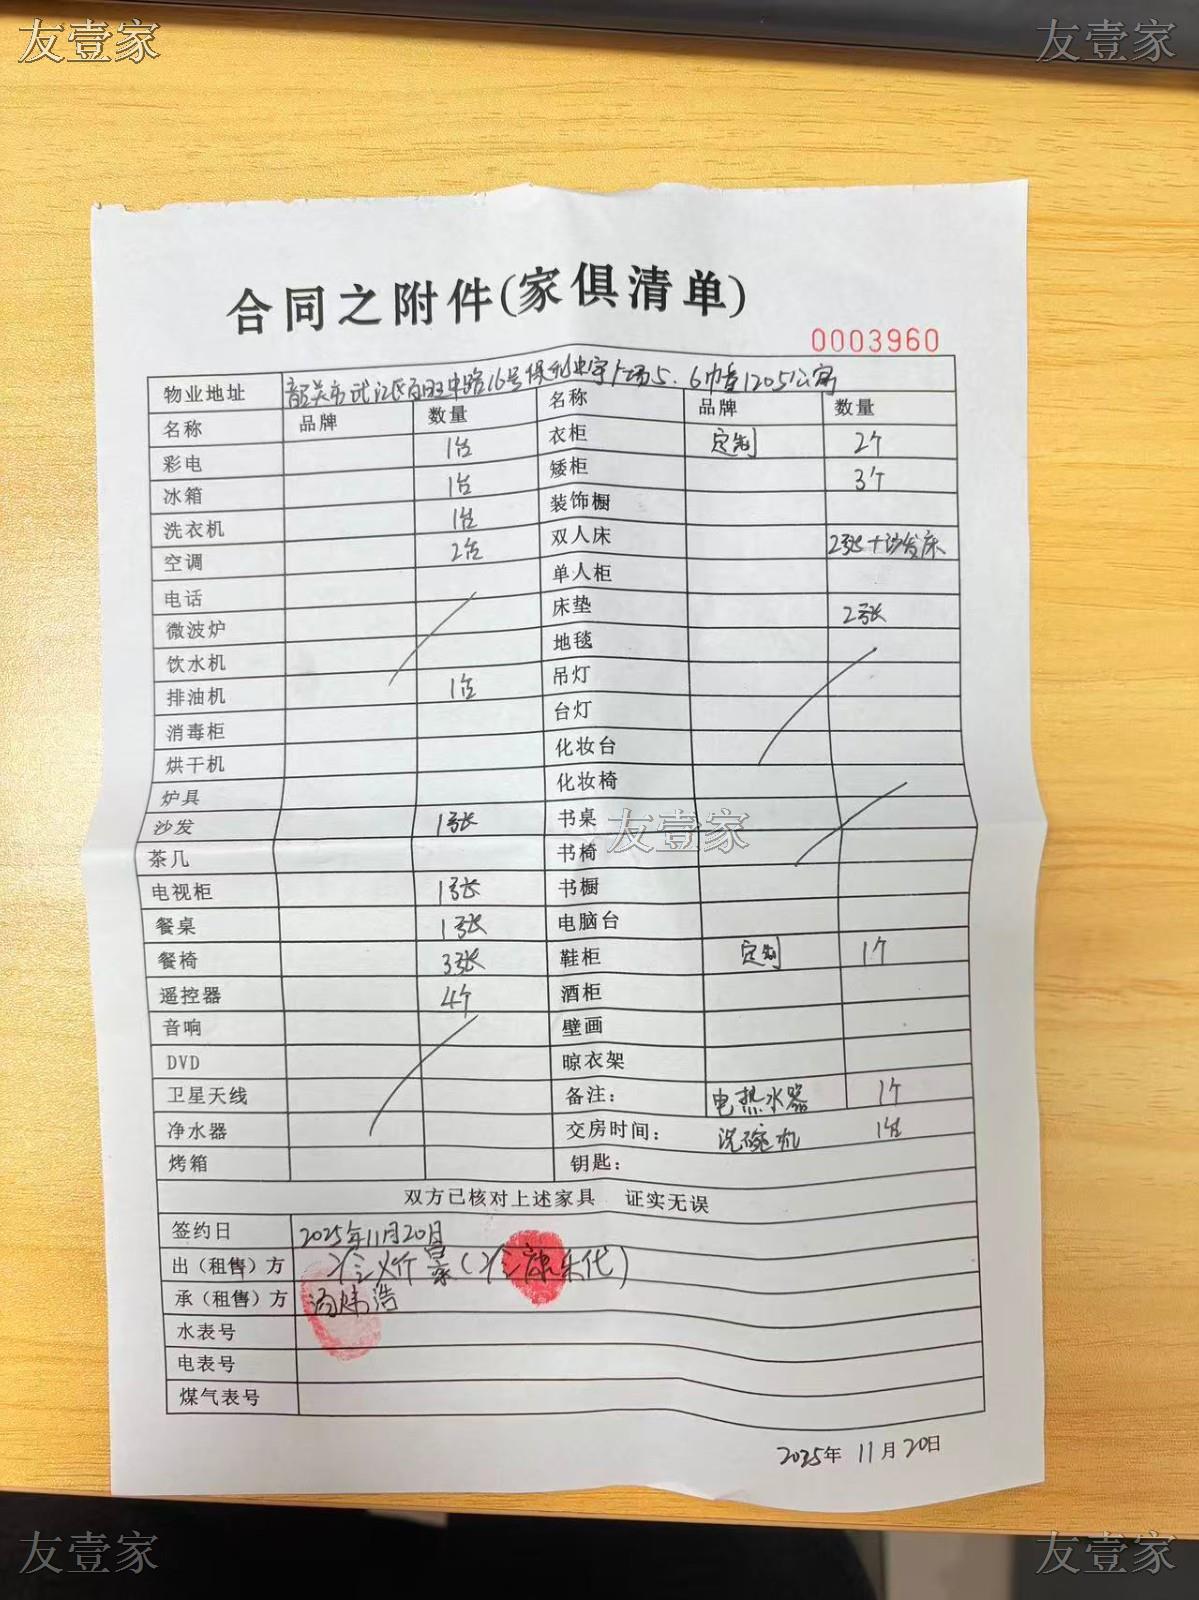 友壹家 友壹家
合同之附件(家俱清单)
0003960
物业地址 韶关市武江区百旺中路16号保利中宇广场5、6幢1205公寓
名称 品牌 数量 名称 品牌 数量
彩电 1台 衣柜 定制 2个
冰箱 1台 矮柜 3个
洗衣机 1台 装饰橱
空调 2台 双人床 2张+沙发床
电话 单人柜
微波炉 床垫 2张
饮水机 地毯
排油机 1台 吊灯
消毒柜 台灯
烘干机 化妆台
炉具 化妆椅
沙发 1张 书桌
友壹家
茶几 书椅
电视柜 1张 书橱
餐桌 1张 电脑台
餐椅 3张 鞋柜 定制 1个
遥控器 4个 酒柜
音响 壁画
DVD 晾衣架
卫星天线 备注: 电热水器 1个
净水器 交房时间: 洗碗机 1台
烤箱 钥匙:
双方已核对上述家具 证实无误
签约日 2025年11月20日
出(租售)方
承(租售)方
水表号
电表号
煤气表号
2025年 11月20日
友壹家 友壹家